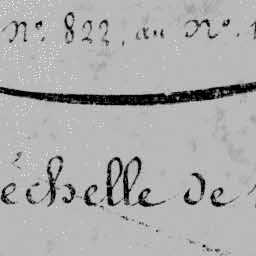 N.º 822, au N.º
échelle de